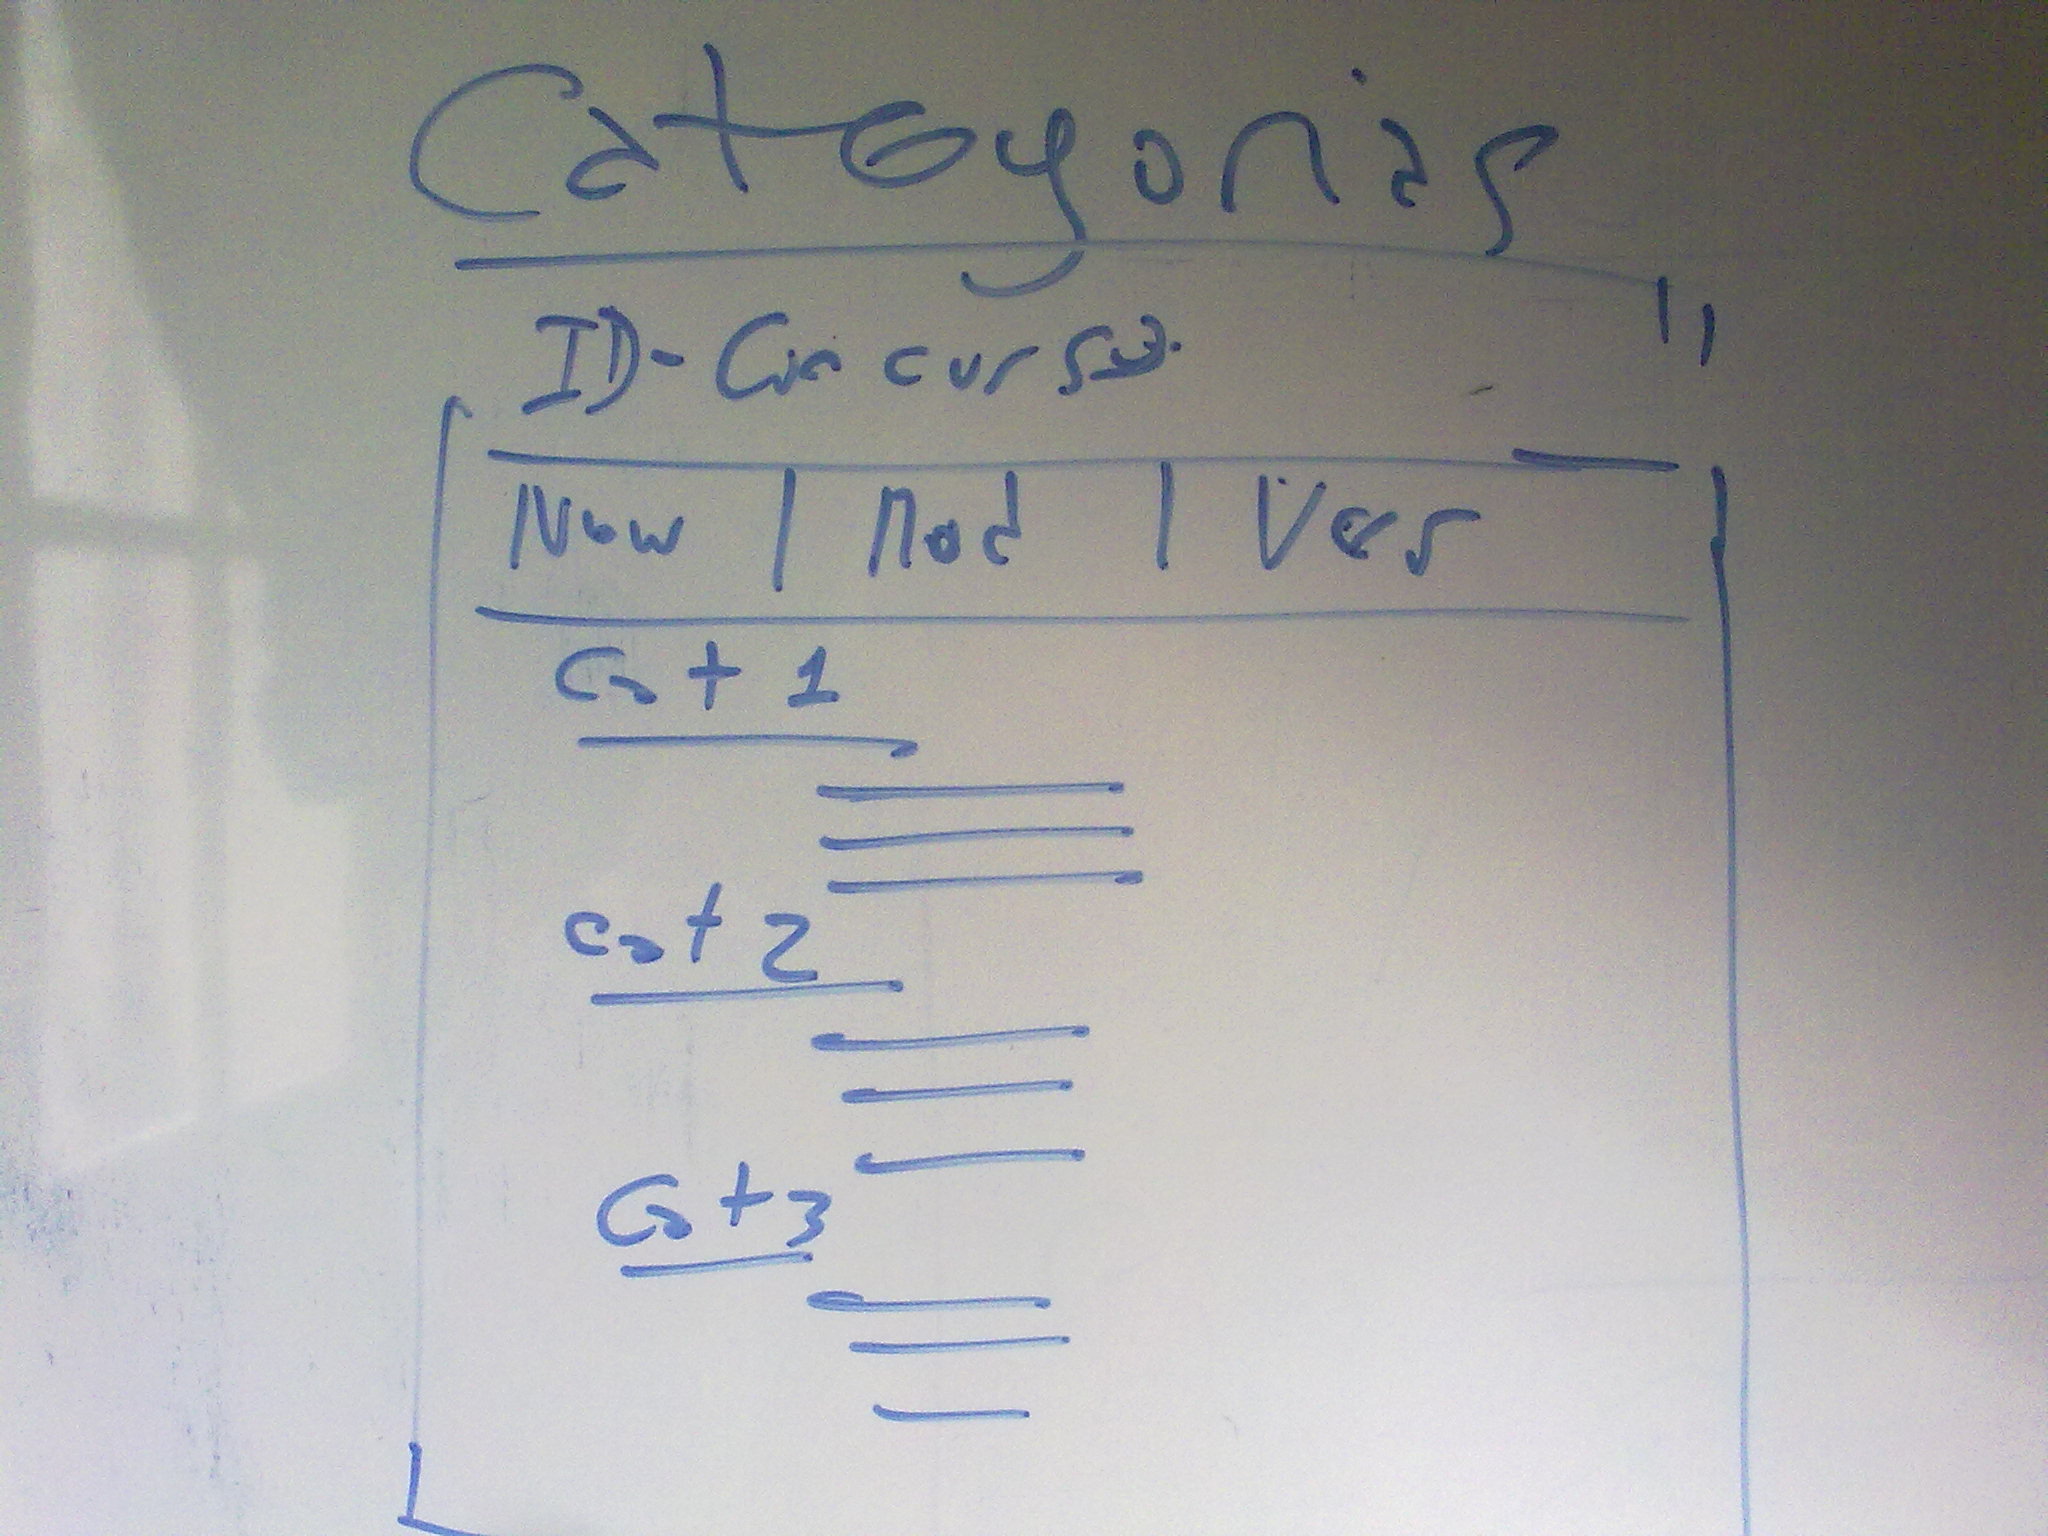 Categorias
ID-Concurso
New | Mod | Vers
Cat 1
cat 2
Cat 3